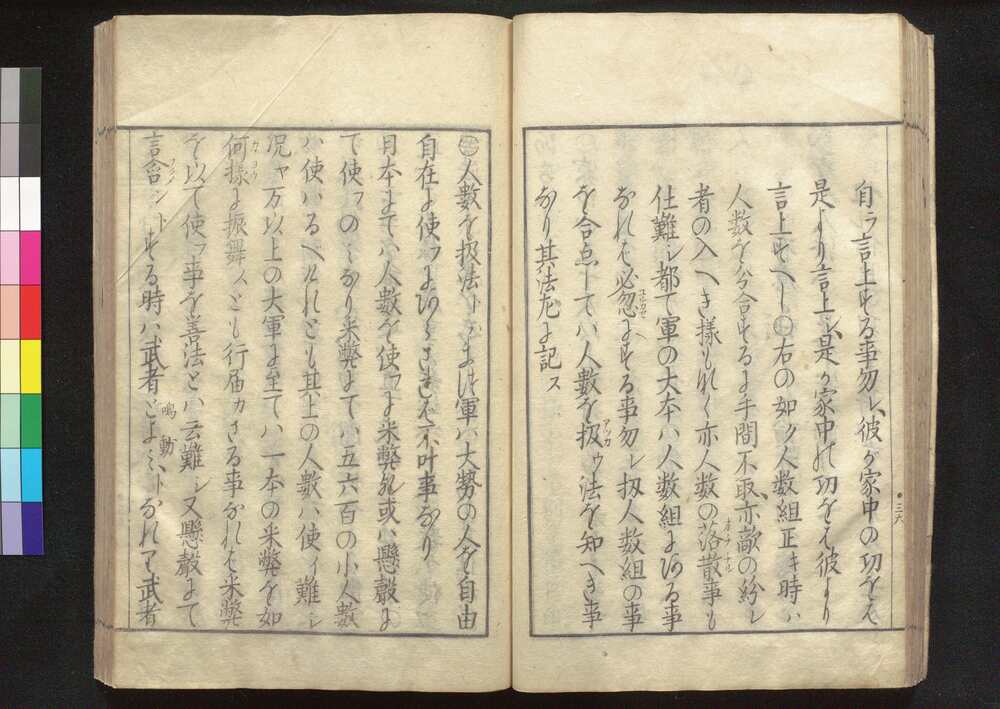 自ラ言上する事勿レ、彼ガ家中の功をハ
是より言上シ、是ガ家中の功をハ彼より
言上すへし○右の如ク人数組正キ時ハ
人数を分合するに手間不取、亦敵の紛レ
者の入へき様もれく亦人数の落散事も
仕難シ都て軍の大本ハ人数組にある事
なれハ必忽にする事勿レ扨人数組の事
を合点してハ人数を扱ゥ法を知へき事
なり其法左に記ス
三六
人数を扱法トいふは軍ハ大勢の人を自由
自在に使フにあらされハ不叶事なり
日本にてハ人数を使フに米弊 或ハ懸聲に
て使フのミなり米弊にてハ五六百の小人数
ハ使ハるへけれとも其上の人数ハ使イ難シ
况ヤ万以上の大軍に至てハ一本の米弊を如
何様に振舞スとも行届カさる事なれハ米弊
を以て使フ事を善法とハ云難シ又懸聲にて
言合ントする時ハ武者とよミトなれハ武者
鳴動